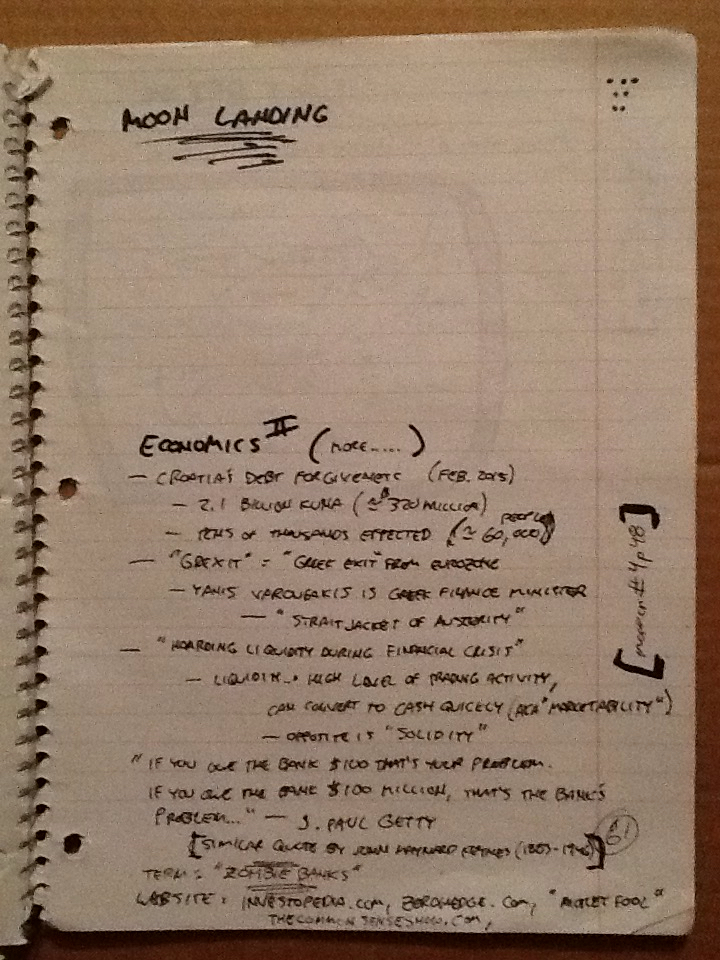 MOON LANDING
ECONOMICS II (MORE.....)
— CROATIA'S DEBT (FEB. 2015)
— 2.1 BILLION KUNA (≃ $320 MILLION)
— TENS OF THOUSANDS EFFECTED (≃ 60,000 PEOPLE)
— "GREXIT" = "GREEK EXIT" FROM EUROZONE
— YANIS VAROUFAKIS IS GREEK FINANCE MINISTER
— "STRAITJACKET OF AUSTERITY"
— "HOARDING LIQUIDITY DURING FINANCIAL CRISIS"
— LIQUIDITY... HIGH LEVEL OF TRADING ACTIVITY,
CAN CONVERT TO CASH QUICKLY (AKA "MARKETABILITY")
— OPPOSITE IS "SOLIDITY"
"IF YOU OWE THE BANK $100 THAT'S YOUR PROBLEM.
IF YOU OWE THE BANK $100 MILLION, THAT'S THE BANK'S
PROBLEM..." — J. PAUL GETTY
[SIMILAR QUOTE BY JOHN MAYNARD KEYNES (1883-1946)]
61
TERM: "ZOMBIE BANKS"
WEBSITE: INVESTOPEDIA.COM, ZEROHEDGE.COM, "MOTLEY FOOL"
THECOMMONSENSESHOW.COM,
[more on #4 p48]